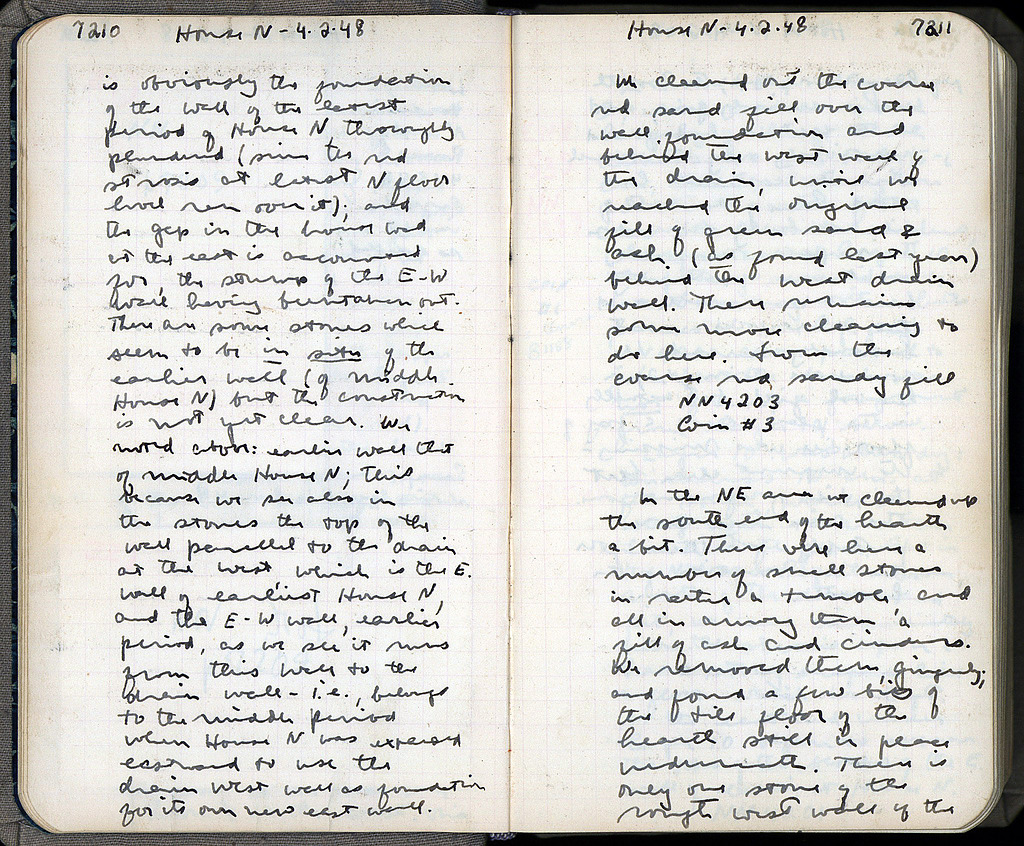 7210 House N - 4.2.48
is obviously the foundation
of the wall of the latest
period of House N, thoroughly
plundered (since the rd
strosis at latest N floor
level ran over it); and
the gap in the house wall
at the east is accounted
for, the stump of the E-W
wall having been taken out.
There are some stones which
seem to be in situ of the
earlier wall (of middle
House N) but the construction
is not yet clear. We
noted above: earlier wall that
of middle House N; this
because we see also in
the stones the top of the
wall parallel to the drain
at the west, which is the E.
wall of earliest House N,
and the E-W wall, earlier
period, as we see it runs
from this wall to the
drain wall - i.e., belongs
to the middle period
when House N was expanded
eastward to use the
drain west wall as foundation
for its own new east wall.
House N - 4.2.48 7211
We cleaned out the coarse
rd sand fill over the
wall foundation and
behind the west wall of
the drain, until we
reached the original
fill of green sand &
ash (as found last year)
behind the west drain
wall. There remains
some more cleaning to
do here. From the
coarse rd sandy fill
NN 4203
Coin #3
In the NE area we cleaned up
the south end of the hearth
a bit. There were here a
number of small stones
in rather a tumble, and
all in among them a
fill of ash and cinders.
We removed them, gingerly,
and found a few bits of
the tile floor of the
hearth still in place
underneath. There is
only one stone of the
rough west wall of the